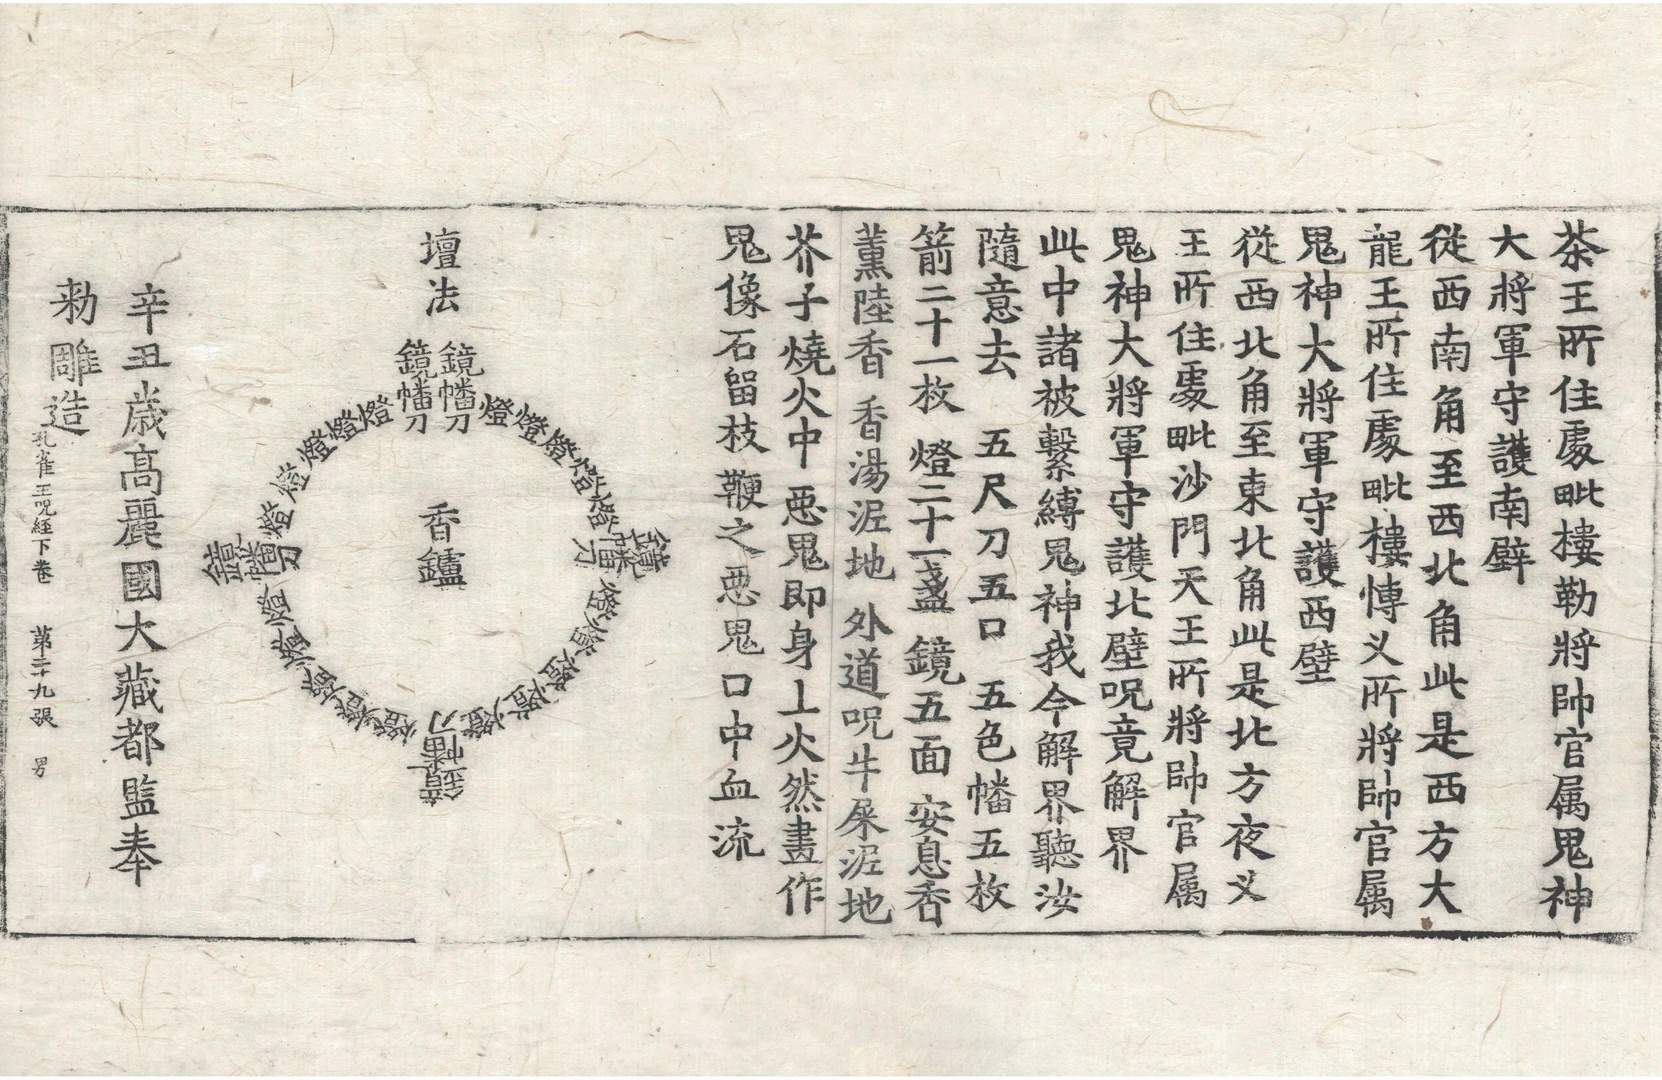 茶王所住處毗樓勒將帥官属鬼神
大將軍守護南壁
從西南角至西北角此是西方大
龍王所住處毗樓愽叉所將帥官属
鬼神大將軍守護西壁
從西北角至東北角此是北方夜叉
王所住處毗沙門天王所將帥官属
鬼神大將軍守護北壁呪竟解界
此中諸被繫縛鬼神我今解界聽汝
隨意去 五尺刀五口 五色幡五枚
箭二十一枚 燈二十一盞 鏡五面 安息香
薫陸香 香湯泥地 外道呪牛屎泥地
芥子燒火中惡鬼即身上火然畫作
鬼像石留枝鞭之惡鬼口中血流
壇法
鏡幡刀
鏡幡刀
燈燈燈燈燈
鏡幡刀
燈燈燈燈燈
鏡幡刀
燈燈燈燈燈燈
鏡幡刀
燈燈燈燈燈
香鑪
辛丑歲高麗國大藏都監奉
勑雕造
孔雀王呪經下卷 第二十九張 男